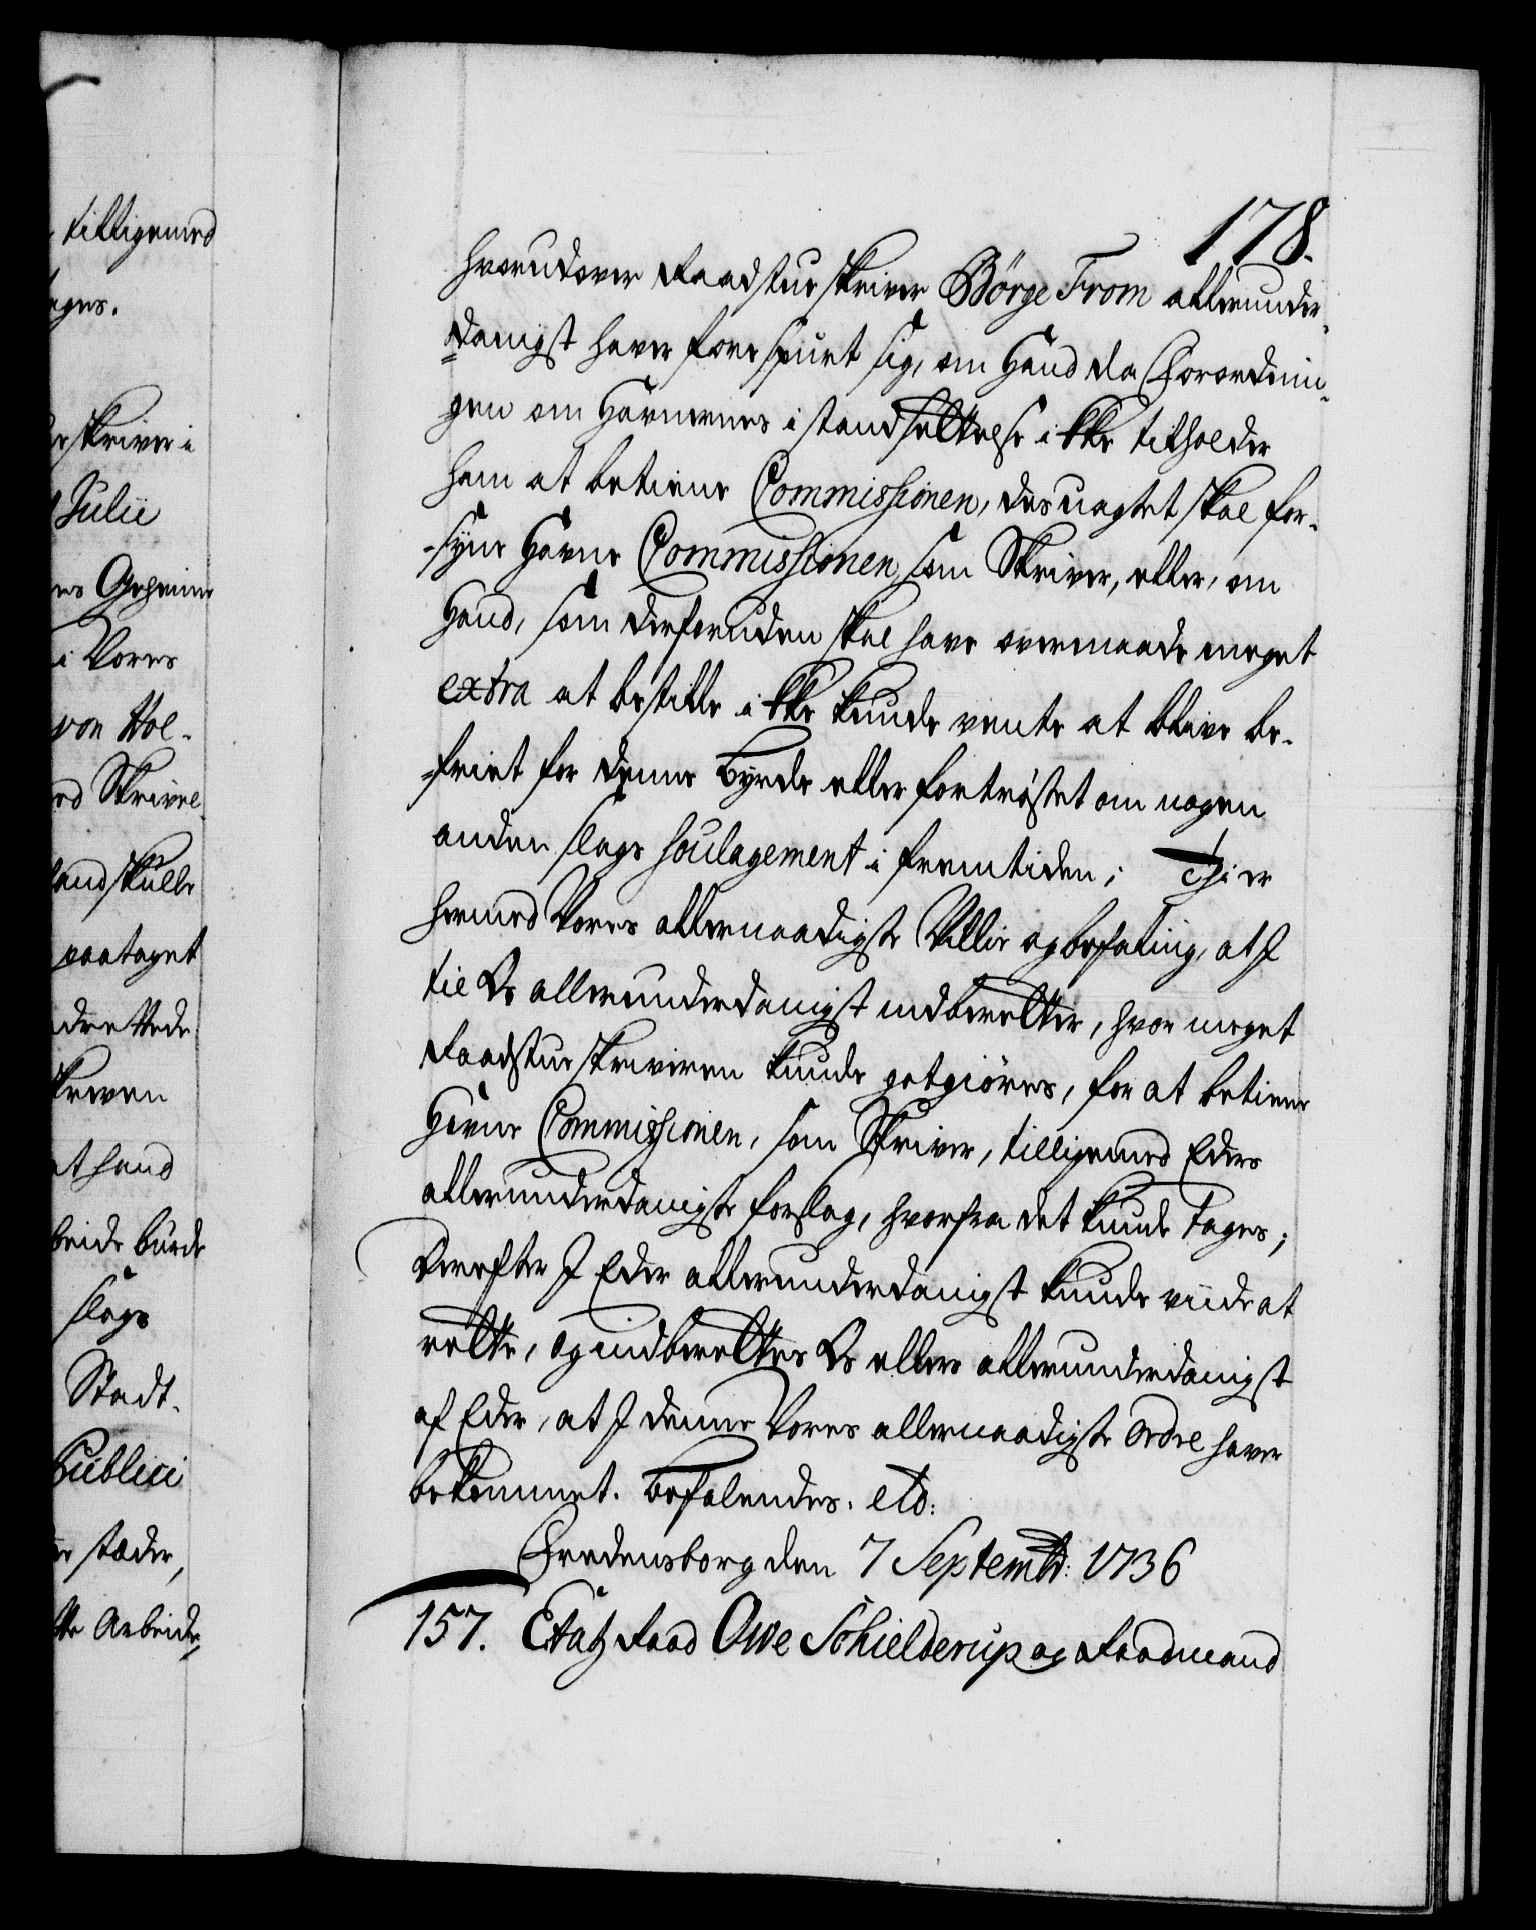 tilligemed
ages.
skriver i
Julii
es Geheime
i Vores
von Hol-
ed Skrivel
land skulle
paataget
dre Stæde
skreven
at hand
beide burde
slags
Stadt.
Publici
stæder,
Arbeide,
178.
hvorudover Raadstueskriver Börge From allerunder-
danigst haver forespurt sig, om Hand da Forordnin-
gen om Havnernes istandsettelse ikke tilholder
ham at betiene Commissionen, des uagtet skal for-
syne Havne Commissionen som Skriver, eller, om
Hand, som desforuden skal have overmaade meget
extra at bestille ikke kunde vente at blive be-
friet for denne Byrde eller fortröstet om nogen
anden slags soulagement i fremtiden; Thi er
hermed Vores allernaadigste Villie og befaling, at I
til Os allerunderdanigst indberetter, hvor meget
Raadstueskriveren kunde godgiöres, for at betiene
Havne Commissionen, som Skriver, tilligemed Eders
allerunderdanigste forslag, hvorfra det kunde tages;
Derefter I Eder allerunderdanigst kunde viide at
rette, og indberettes Os ellers allerunderdanigst
af Eder, at I denne Vores allernaadigste Ordre haver
bekommet. Befalendes. etc:
Fredensborg den 7 Septembr: 1736
157. Etatz Raad Owe Schielderup og Raadmand